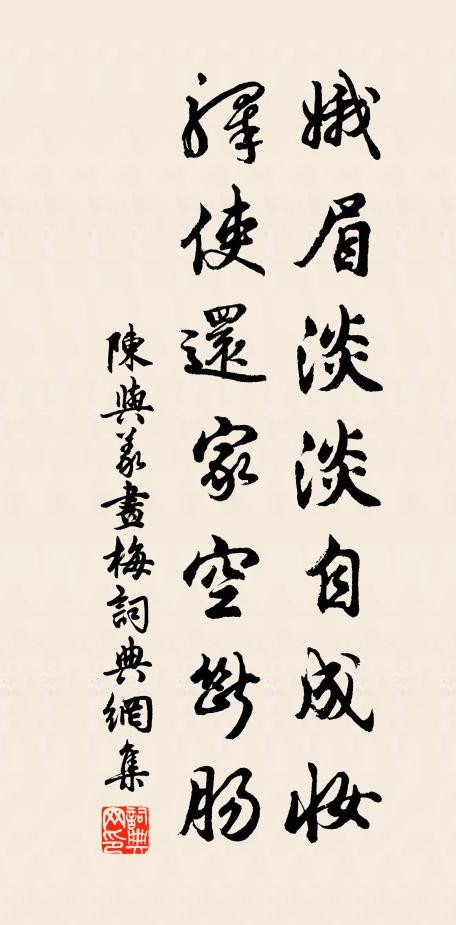 娥眉淡淡自成妝
驛使還家空斷腸
陳與義畫梅詞典網集
詞典网印